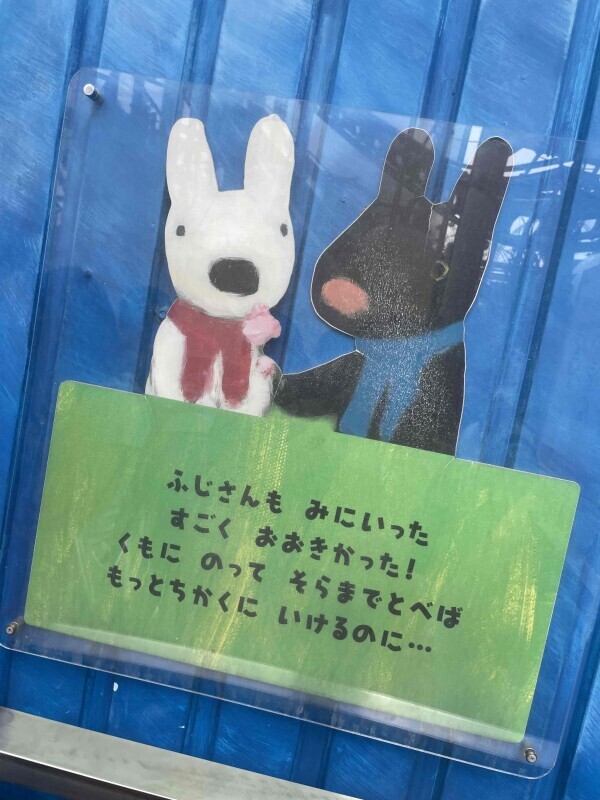 ふじさんも みにいった
すごく おおきかった!
くもに のって そらまでとべば
もっとちかくに いけるのに…